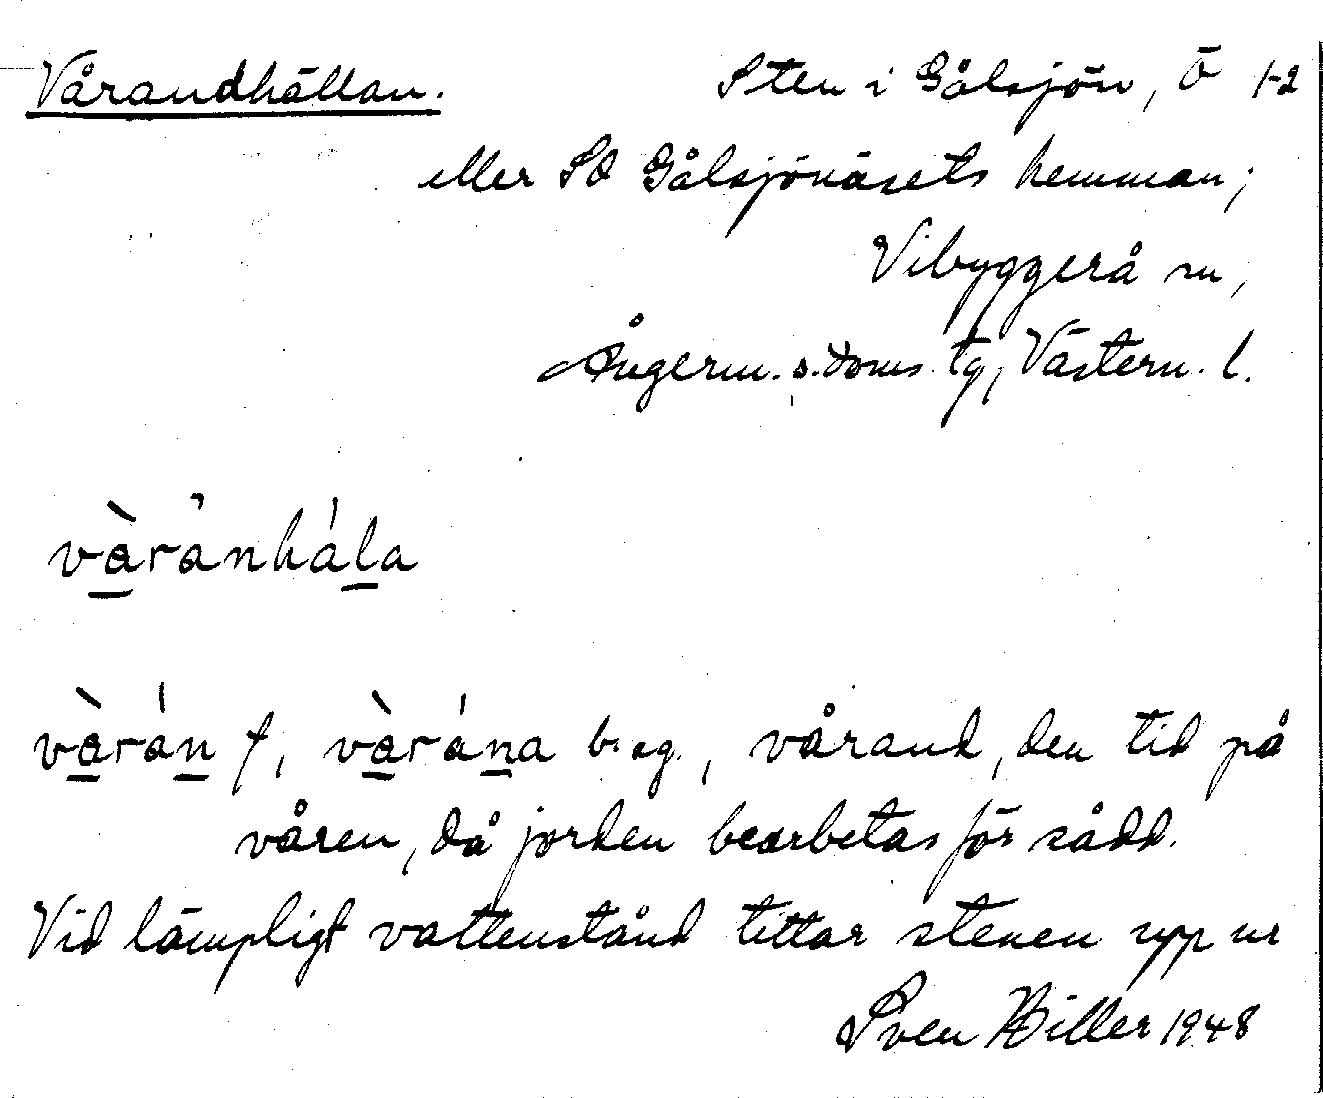 Vårandhällan. Sten i Gålsjön, Ö 1-2
eller SO Gålsjönäsets hemman;
Vibyggerå sn,
Ångerm. s. doms. tg, Västern. l.
vàrån hála
vàrán f, vàrána b. sg., vårand, den tid på
våren, då jorden bearbetas för sådd.
Vid lämpligt vattenstånd tittar stenen upp ur
Sven Hiller 1948